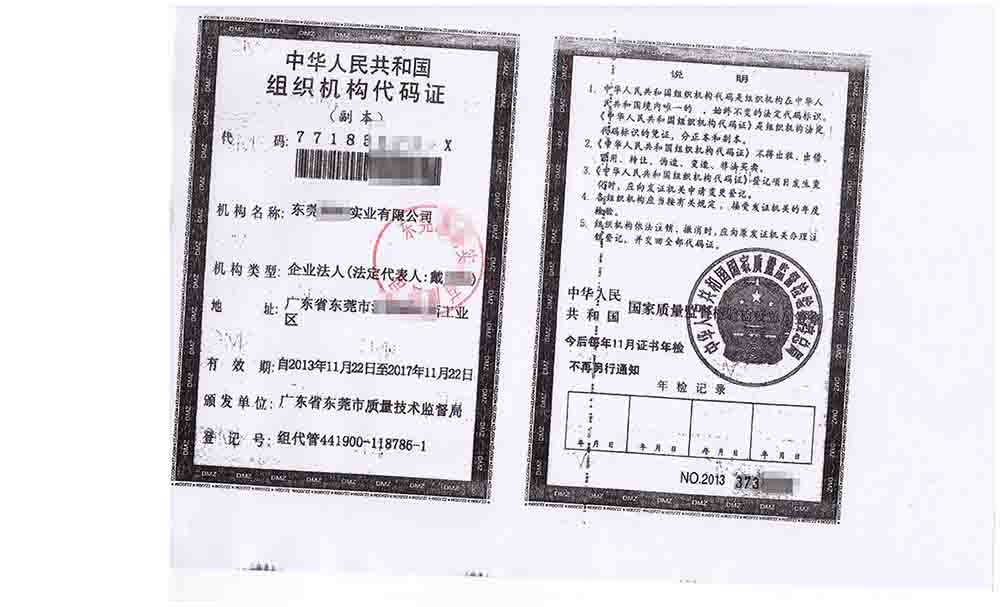 中华人民共和国
组织机构代码证
(副本)
代 码: 77188 X
机构名称: 东莞 实业有限公司
机构类型: 企业法人(法定代表人:戴 )
地 址: 广东省东莞市 工业
区
有 效 期: 自2013年11月22日至2017年11月22日
颁发单位: 广东省东莞市质量技术监督局
登 记 号: 组代管441900-118786-1
说 明
1. 中华人民共和国组织机构代码是组织机构在中华人
民共和国境内唯一的、始终不变的法定代码标识。
《中华人民共和国组织机构代码证》是组织机构法定
代码标识的凭证,分正本和副本。
2. 《中华人民共和国组织机构代码证》不得出租、出借、
冒用、转让、伪造、变造、非法买卖。
3. 《中华人民共和国组织机构代码证》登记项目发生变
化时,应向发证机关申请变更登记。
4. 各组织机构应当按有关规定,接受发证机关的年度
检验。
5. 组织机构依法注销、撤消时,应向原发证机关办理注
销登记,并交回全部代码证。
中华人民
共和国 国家质量监督检验检疫总局
中华人民共和国国家质量监督检验检疫总局
今后每年11月证书年检
不再另行通知
年检记录
年 月 日 年 月 日 年 月 日 年 月 日
NO.2013 373